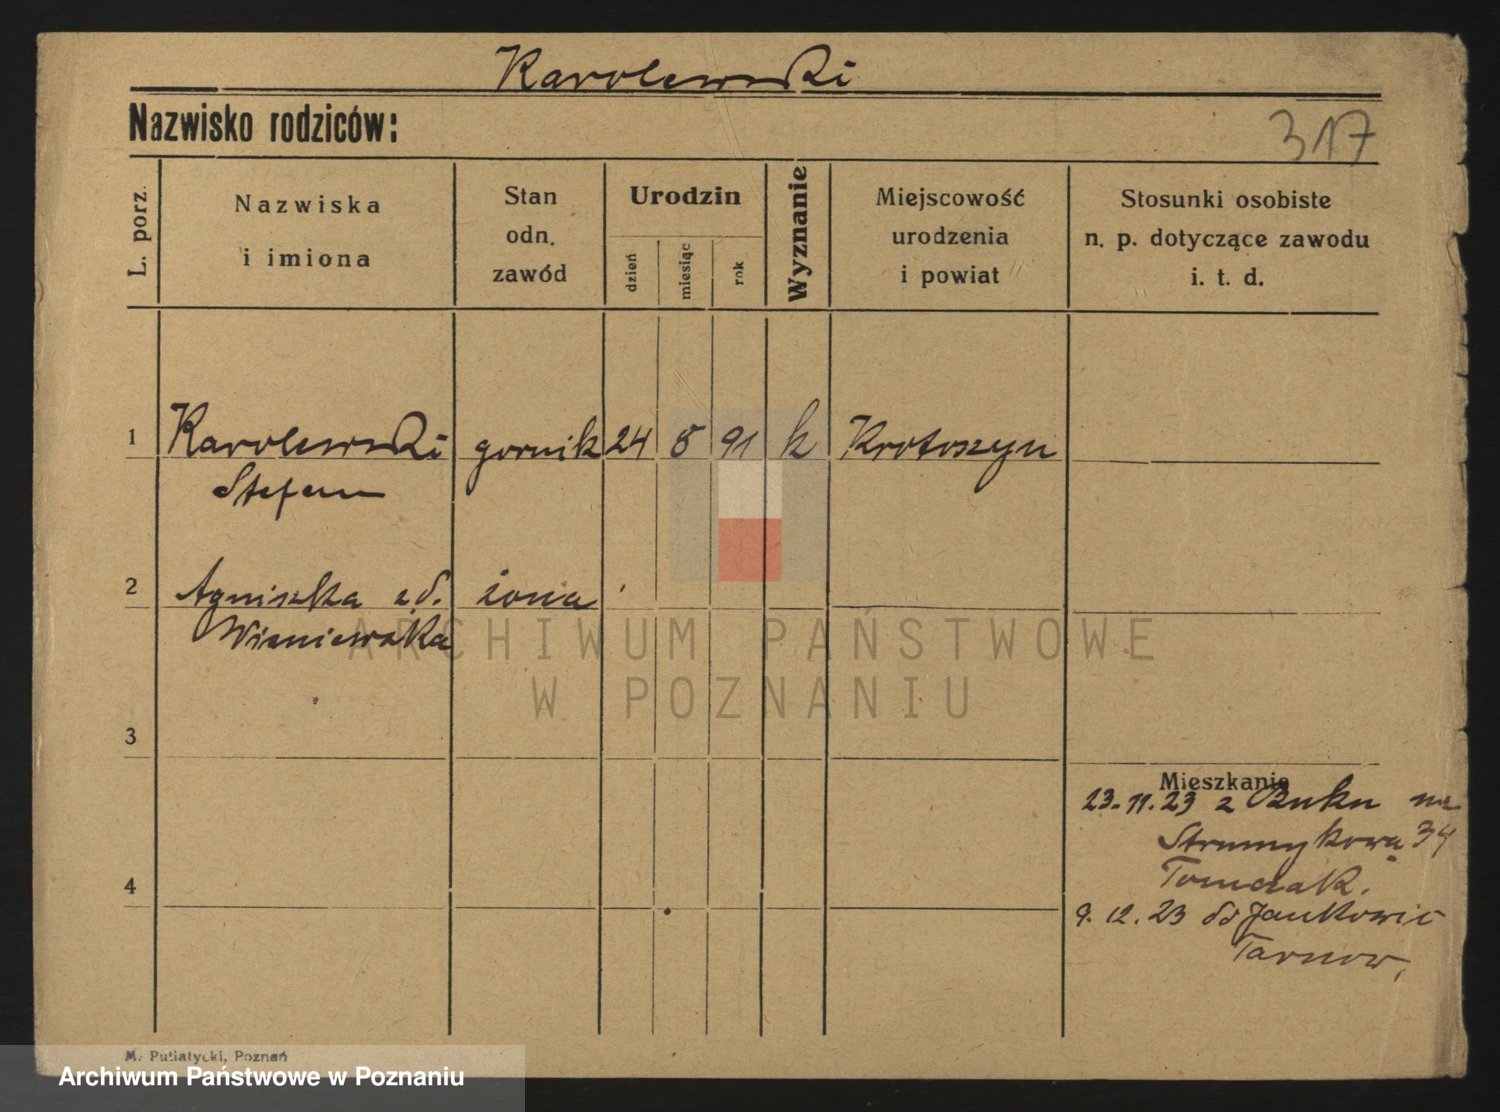 Karolewski
Nazwisko rodziców:
317
L. porz.
Nazwiska
i imiona
Stan
odn.
zawód
Urodzin
dzień
miesiąc
rok
Wyznanie
Miejscowość
urodzenia
i powiat
Stosunki osobiste
n. p. dotyczące zawodu
i. t. d.
1 Karolewski gornik 24 8 91 k Krotoszyn
Stefan
2 Agniszka zd. żona
Wisniewska
ARCHIWUM PAŃSTWOWE
W POZNANIU
3
Mieszkanie
23.11.23 z Buku na
Strumykowa 34
4
Tomczak.
9.12.23 do Jankowic
Tarnow,
M. Putiatycki, Poznań
Archiwum Państwowe w Poznaniu